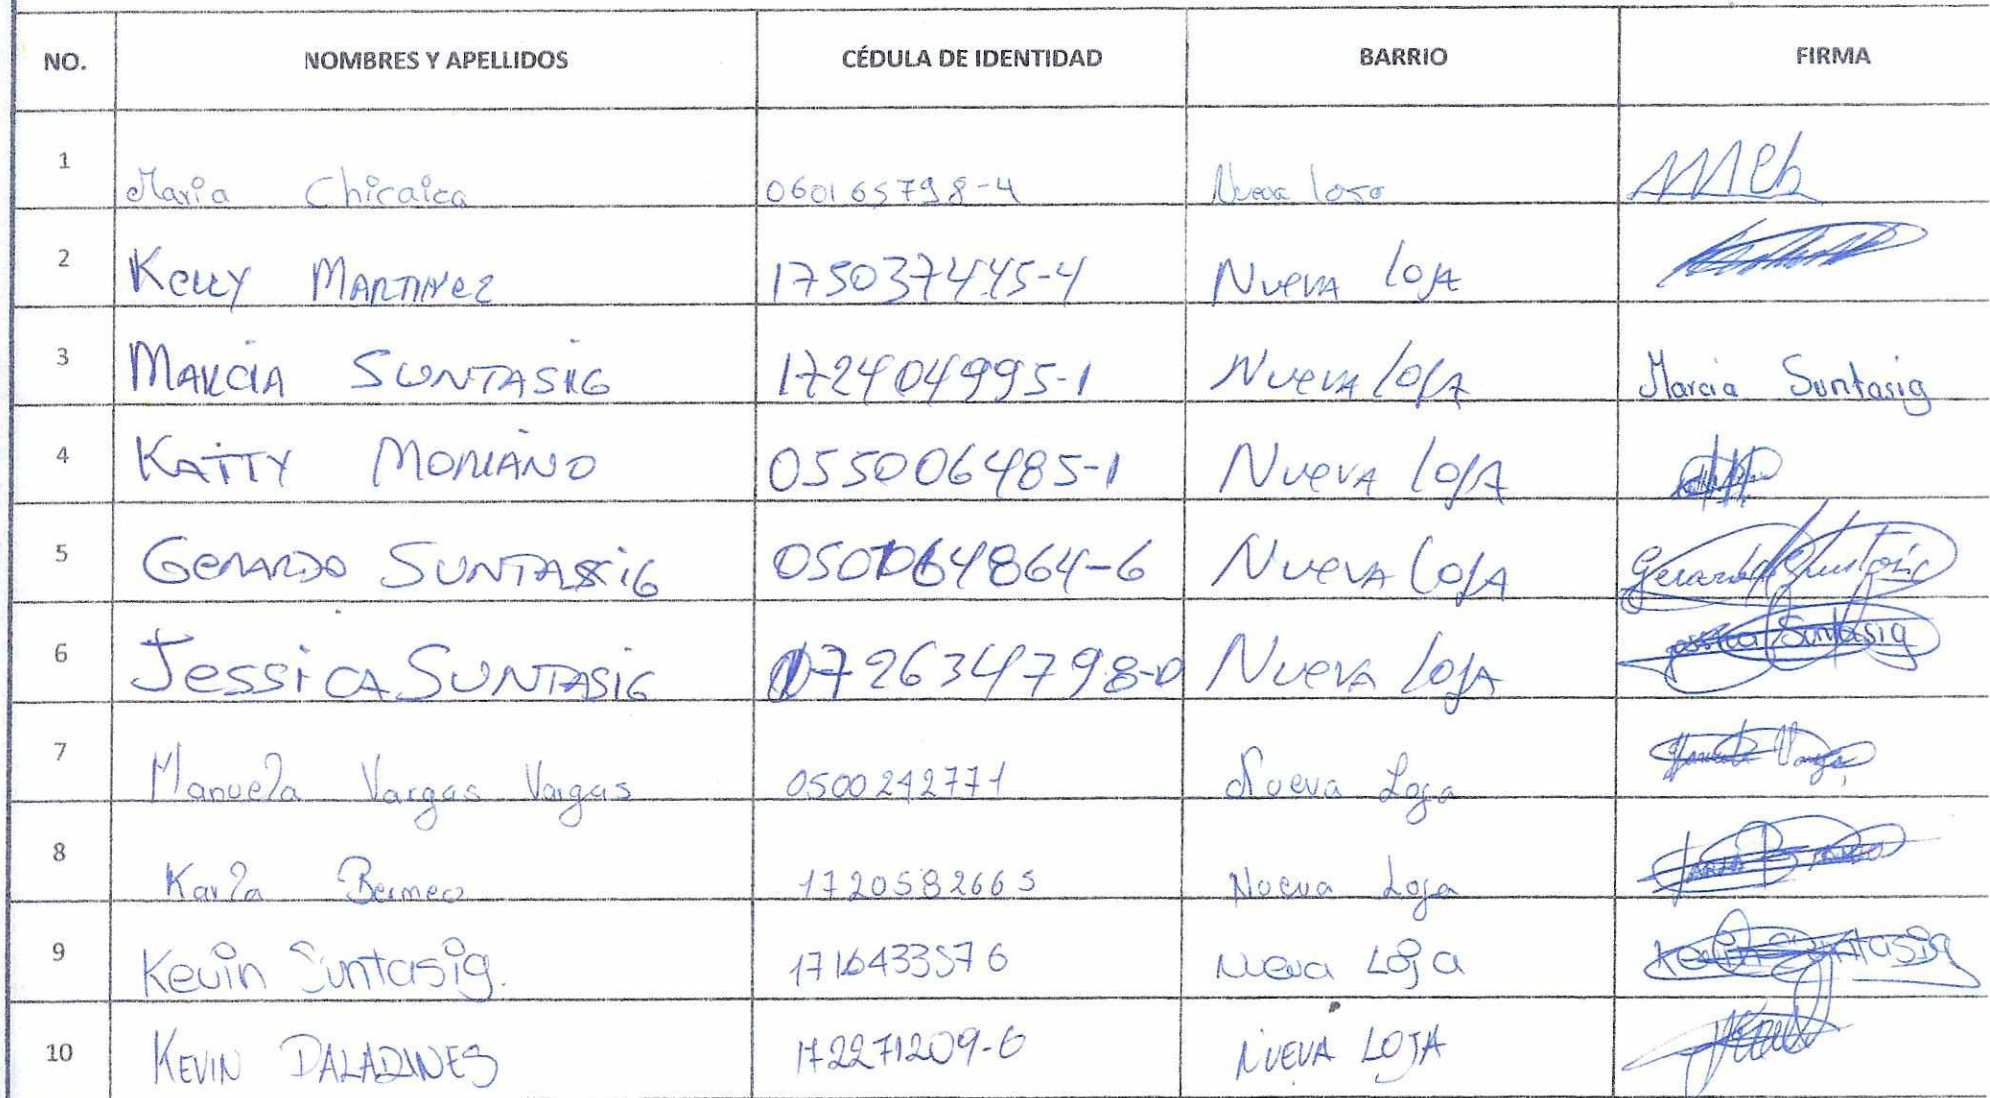 NO. NOMBRES Y APELLIDOS CÉDULA DE IDENTIDAD BARRIO FIRMA
1 Maria Chicaica 060165798-4 Nueva loso
2 Kelly MARTINEZ 175037445-4 NUEVA lOJA
3 MARCIA SUNTASIG 172404995-1 NUEVA lOJA Marcia Suntasig
4 KATTY MORIANO 055006485-1 NUEVA lOJA
5 GERARDO SUNTASIG 050064864-6 NUEVA LOJA
6 JESSiCA SUNTASIG 172634798-0 NUEVA lOJA Jessica Suntasig
7 Manuela Vargas Vargas 0500242771 Nueva Loja Manuela Vargas
8 Karla Bermeo 1720582665 Nueva Loja
9 Kevin Suntasig. 1716433576 Nueva Loja Kevin Suntasig
10 KEVIN PALADINES 172271209-6 NUEVA LOJA